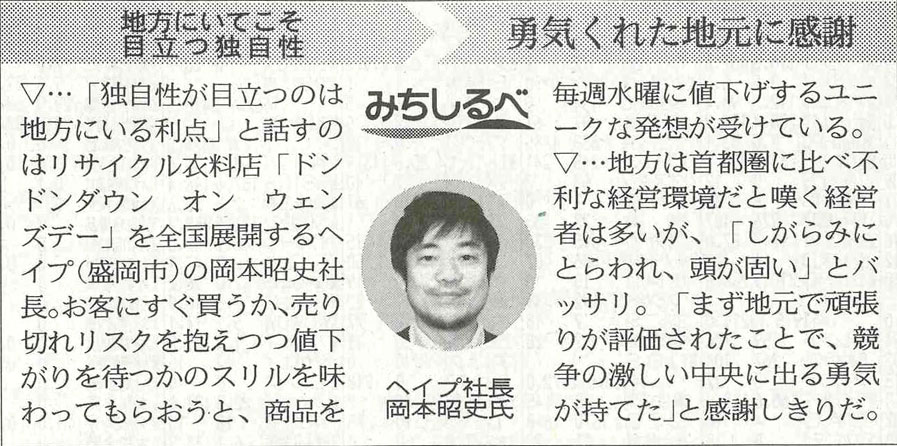 地方にいてこそ
目立つ独自性
勇気くれた地元に感謝
みちしるべ
▽…「独自性が目立つのは
地方にいる利点」と話すの
はリサイクル衣料店「ドン
ドンダウン　オン　ウェン
ズデー」を全国展開するヘ
イプ(盛岡市)の岡本昭史社
長。お客にすぐ買うか、売り
切れリスクを抱えつつ値下
がりを待つかのスリルを味
わってもらおうと、商品を
毎週水曜に値下げするユニ
ークな発想が受けている。
▽…地方は首都圏に比べ不
利な経営環境だと嘆く経営
者は多いが、「しがらみに
とらわれ、頭が固い」とバ
ッサリ。「まず地元で頑張
りが評価されたことで、競
争の激しい中央に出る勇気
が持てた」と感謝しきりだ。
ヘイプ社長
岡本昭史氏